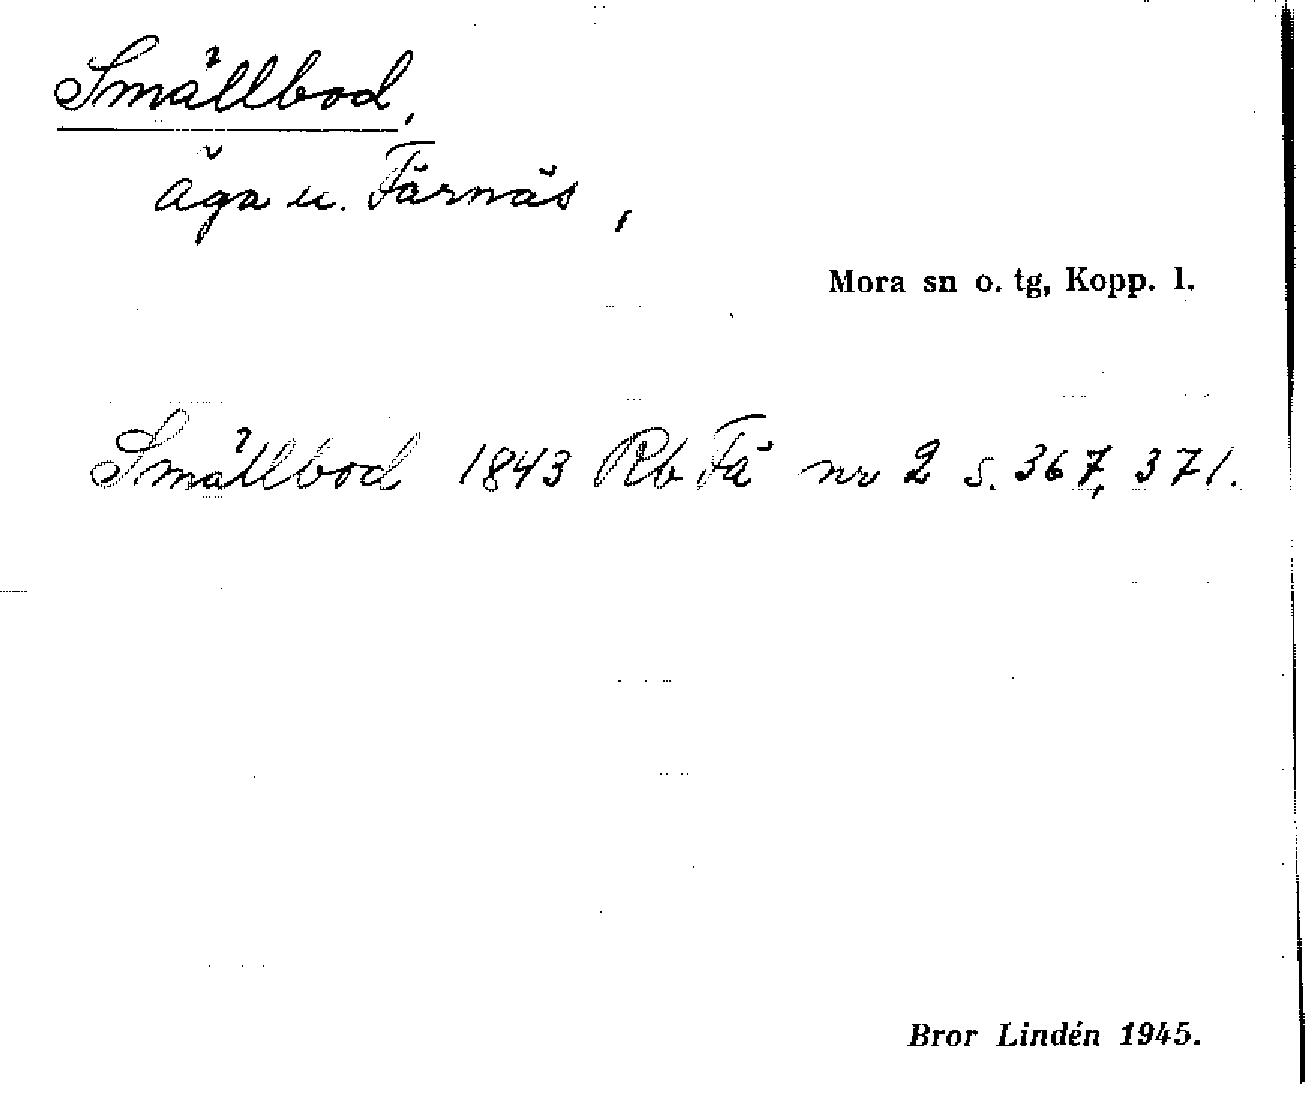 Smällbod,
äga u. Färnäs,
Mora sn o. tg, Kopp. l.
Smällbod 1843 Rb Fä nr 2 s. 367, 371.
Bror Lindén 1945.